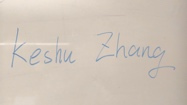 Keshu Zhang